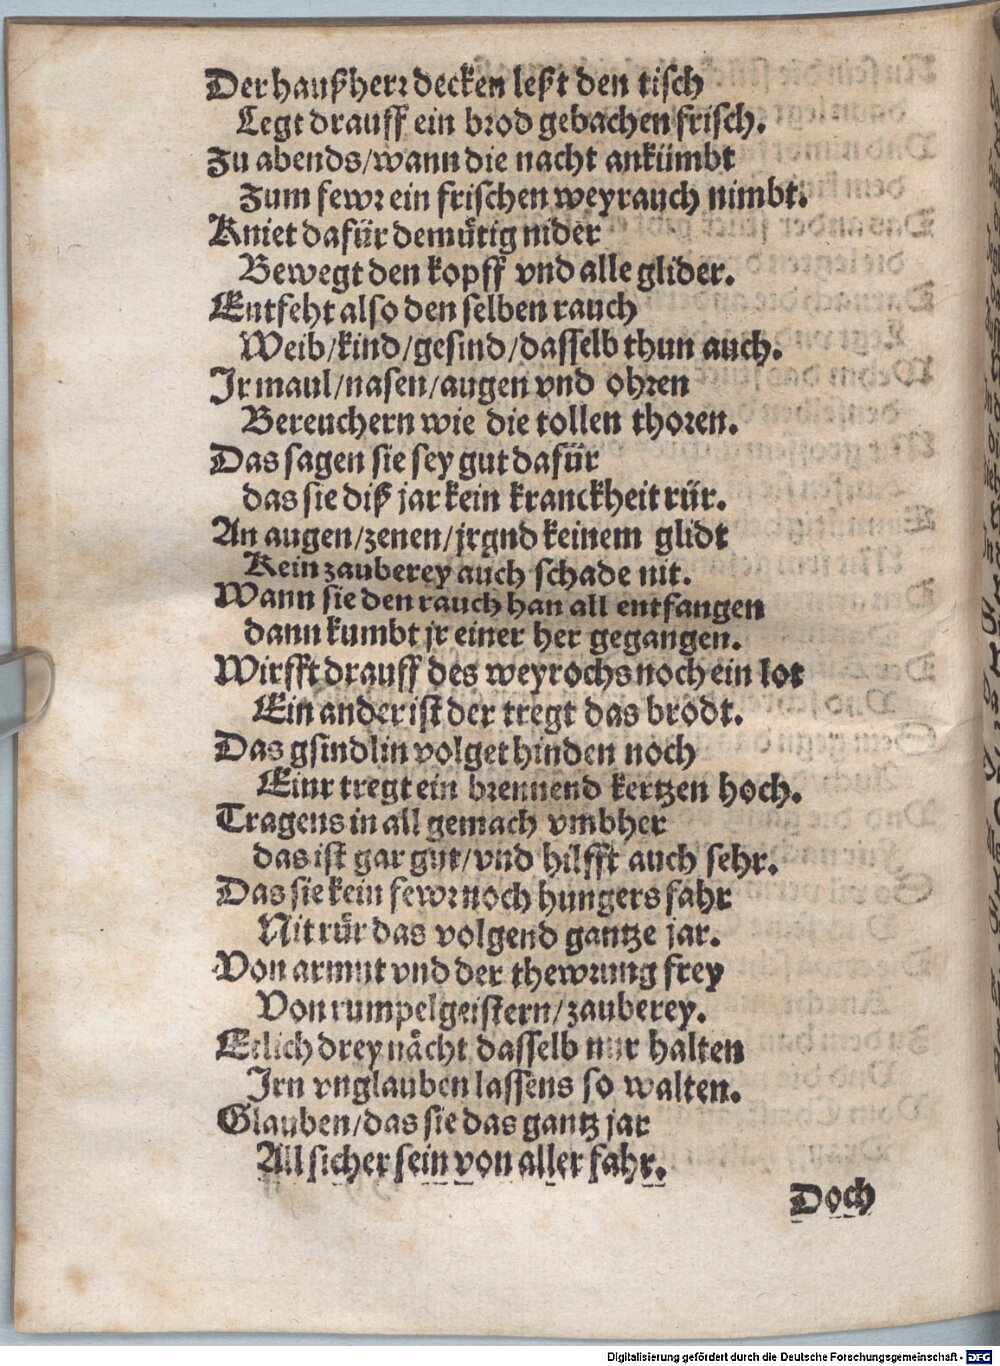 Der haußherꝛ decken leßt den tisch
Legt drauff ein bꝛod gebachen frisch.
Zu abends/wann die nacht ankümbt
Zum fewꝛ ein frischen weyrauch nimbt.
Kniet dafür demuͤtig nider
Bewegt den kopff vnd alle glider.
Entfeht also den selben rauch
Weib/kind/gesind/dasselb thun auch.
Jr maul/nasen/augen vnd ohꝛen
Bereuchern wie die tollen thoꝛen.
Das sagen sie sey gut dafür
das sie diß jar kein kranckheit rür.
An augen/zenen/jrgnd keinem glidt
Kein zauberey auch schade nit.
Wann sie den rauch han all entfangen
dann kumbt jr einer her gegangen.
Wirfft drauff des weyrochs noch ein lot
Ein ander ist der tregt das brodt.
Das gsindlin volget hinden noch
Einr tregt ein bꝛennend kertzen hoch.
Tragens in all gemach vmbher
das ist gar gut/vnd hilfft auch sehr.
Das sie kein fewꝛ noch hungers fahr
Nit ruͤr das volgend gantze jar.
Von armut vnd der thewrung frey
Von rumpelgeistern/zauberey.
Etlich drey naͤcht dasselb nur halten
Jrn vnglauben lassens so walten.
Glauben/das sie das gantz jar
All sicher sein von aller fahr.
Doch
Digitalisierung gefördert durch die Deutsche Forschungsgemeinschaft - DFG